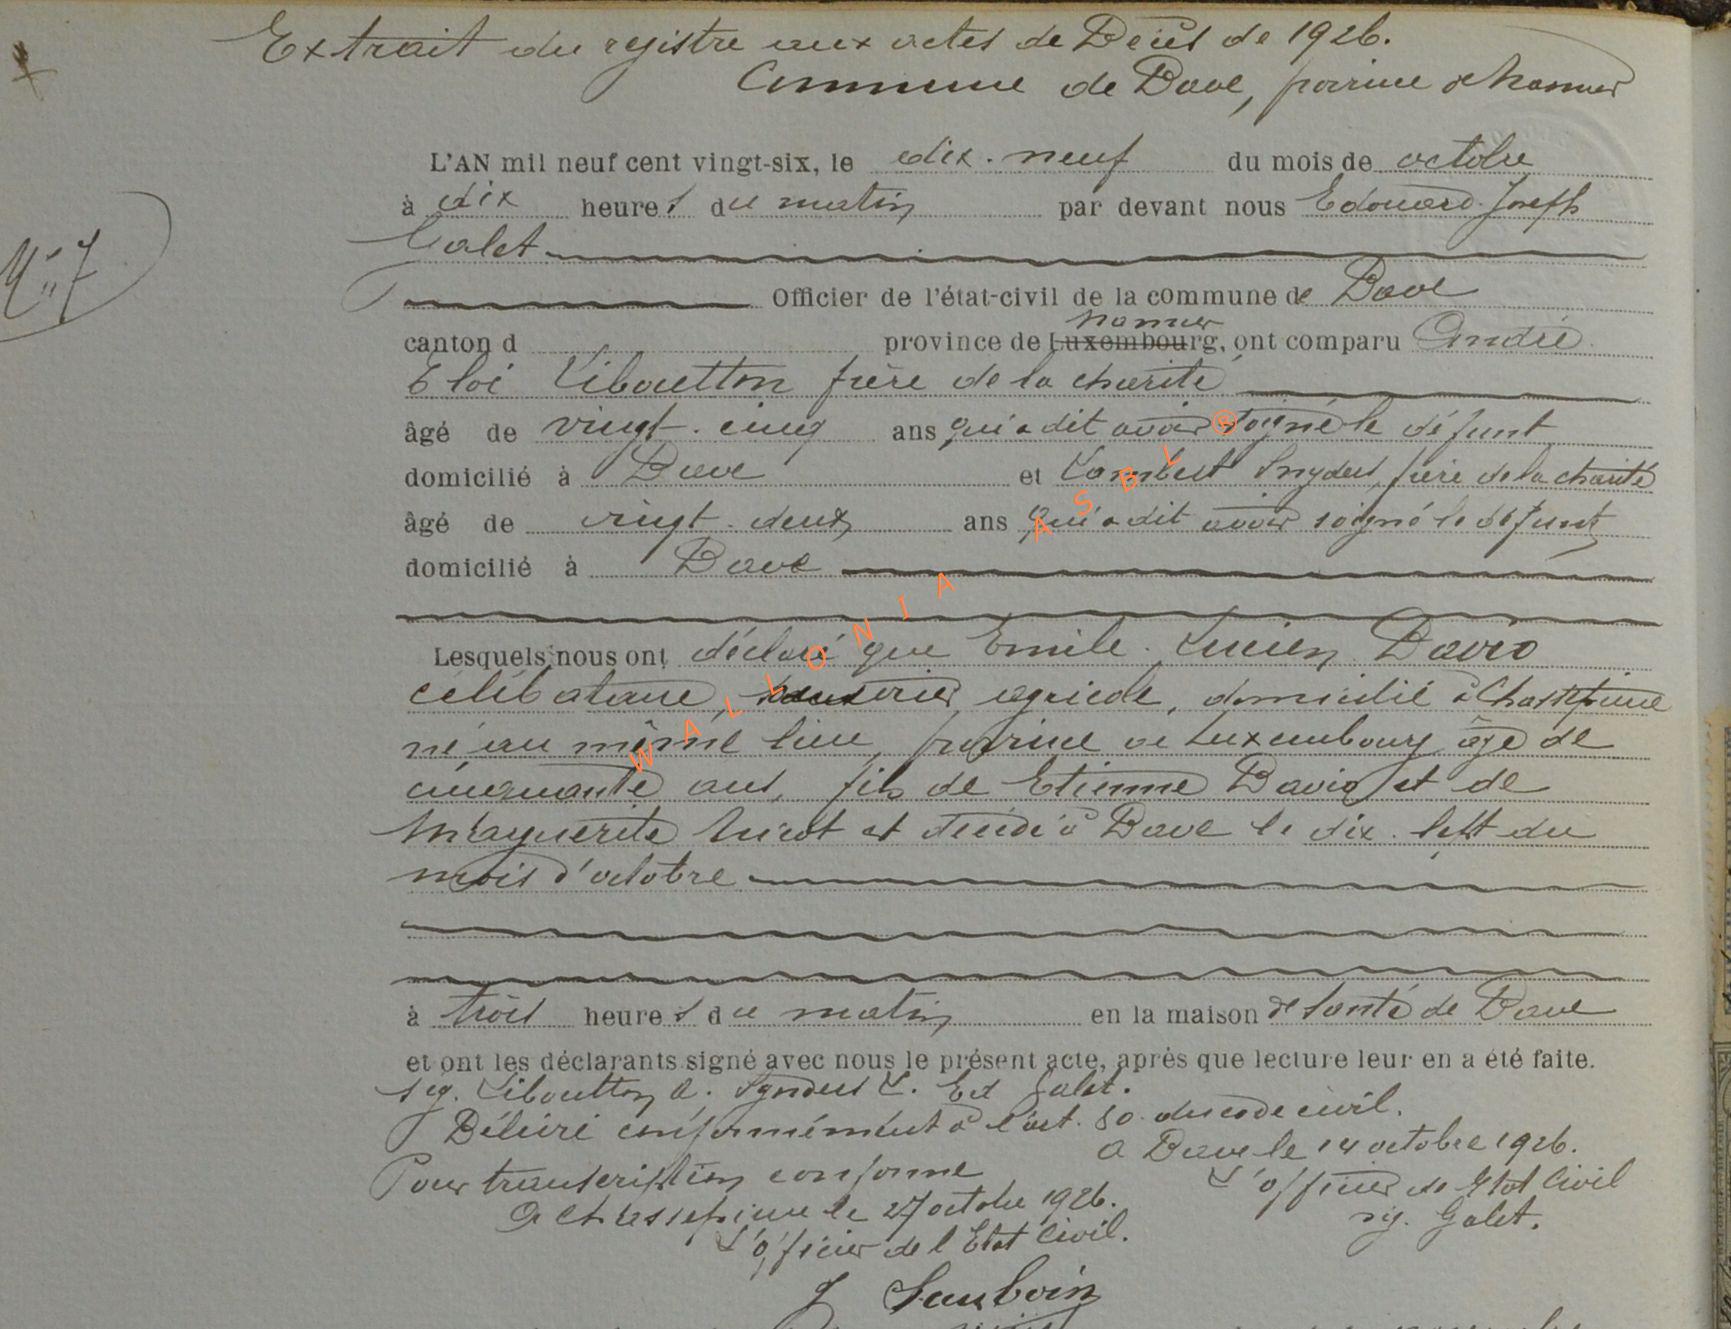 Extrait du registre aux actes de Décès de 1926.
Commune de Dave, province de Namur
L'AN mil neuf cent vingt-six, le dix-neuf du mois de octobre
à dix heures du matin par devant nous Edouard Joseph
N° 7
Galet
Officier de l'état-civil de la commune de Dave
Namur
canton d province de Luxembourg, ont comparu André
Eloi Liboutton frère de la charité
âgé de vingt-cinq ans qui a dit avoir soigné le défunt
domicilié à Dave et Lambert Snyders, frère de la charité
âgé de vingt-deux ans qui a dit avoir soigné le défunt
domicilié à Dave
Lesquels nous ont déclaré que Emile Lucien David
célibataire, ouvrier agricole, domicilié à Chassepierre
né au même lieu, province de Luxembourg âgé de
cinquante ans, fils de Etienne David et de
Marguerite Nicot est décédé à Dave le dix-sept du
mois d'octobre
à trois heures du matin en la maison de Santé de Dave
et ont les déclarants signé avec nous le présent acte, après que lecture leur en a été faite.
sig. Liboutton A. Snyders L. Ed Galet.
Délivré conformément à l'art. 80 du code civil.
A Dave le 14 octobre 1926.
Pour transcription conforme
L'officier de l'Etat Civil
A Chassepierre le 27 octobre 1926.
sig. Galet.
L'officier de l'Etat Civil.
J Sauboin
WALLONIA ASBL ®